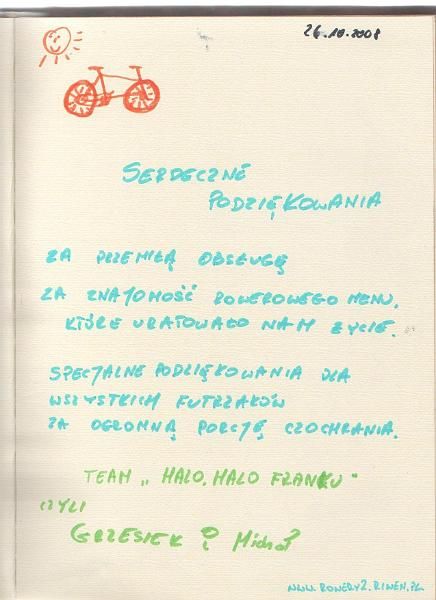 26.10.2008
SERDECZNE
PODZIĘKOWANIA
ZA PRZEMIŁĄ OBSŁUGĘ
ZA ZNAJOMOŚĆ ROWEROWEGO MENU,
KTÓRE URATOWAŁO NAM ŻYCIE.
SPECJALNE PODZIĘKOWANIA DLA
WSZYSTKICH FUTRZAKÓW
ZA OGROMNĄ PORCJĘ CZOCHRANIA.
TEAM „HALO, HALO FRANKU"
CZYLI
GRZESIEK i Michał
WWW.ROWERY2.RIWEN.PL